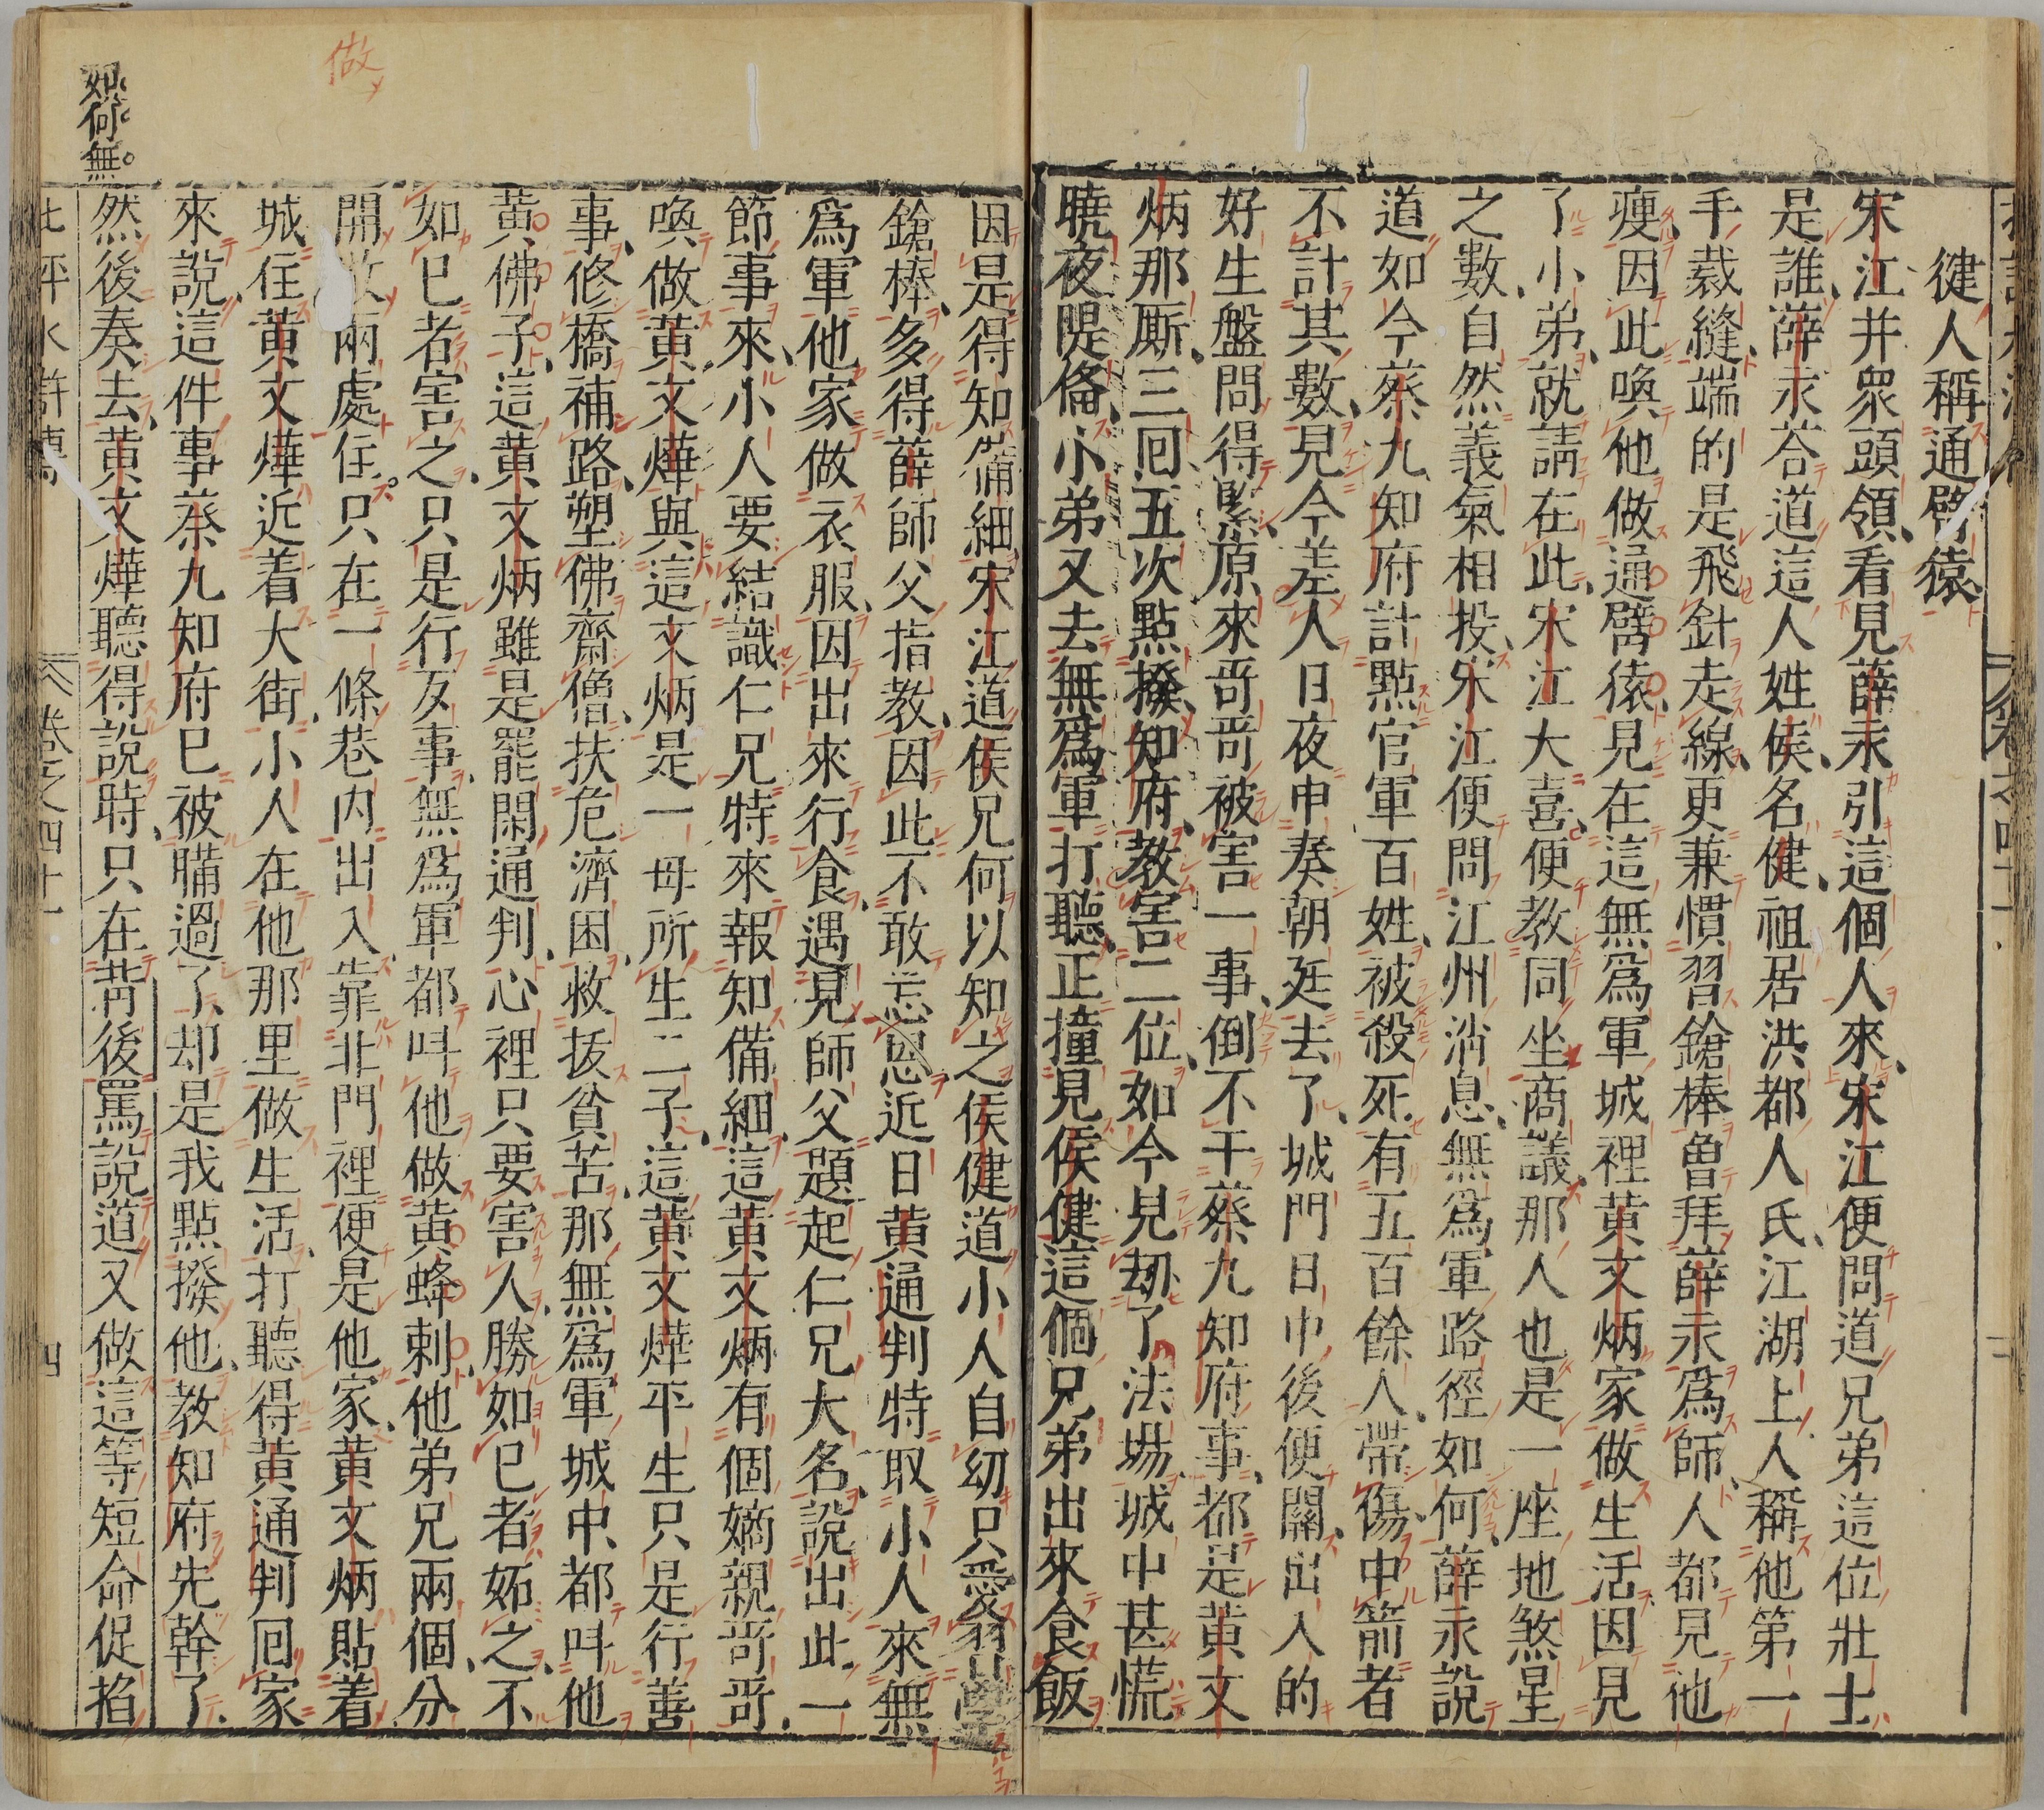 健人稱通臂猿
宋江并衆頭領、看見薛永引這個人來、宋江便問道、兄弟這位壯士
是誰、薛永荅道、這人姓侯、名健、祖居洪都人氏、江湖上人稱他第一
手裁縫、端的是飛針走線、更兼慣習鎗棒、曾拜薛永爲師、人都見他
瘦、因此喚他做通臂猿、見在這無爲軍城裡黃文炳家做生活、因見
了小弟、就請在此、宋江大喜、便教同坐商議、那人也是一座地煞星
之數、自然義氣相投、宋江便問江州消息、無爲軍路徑如何、薛永說
道、如今蔡九知府計點官軍百姓、被殺死有五百餘人、帶傷中箭者
不計其數、見今差人日夜申奏朝廷去了、城門日中後便關、出入的
好生盤問得緊、原來哥哥被害一事、倒不干蔡九知府事、都是黃文
炳那厮、三回五次點撥知府、教害二位、如今見刼了法塲、城中甚慌
曉夜隄俻、小弟又去無爲軍打聽、正撞見侯健這個兄弟出來食飯
因是得知備細、宋江道、侯兄何以知之、侯健道、小人自幼只愛習學
鎗棒、多得薛師父指教、因此不敢忘恩、近日黃通判特取小人來無
爲軍他家做衣服、因出來行食、遇見師父、題起仁兄大名、說出此一
節事來、小人要結識仁兄、特來報知備細、這黃文炳有個嫡親哥哥、
喚做黃文燁、與這文炳是一母所生二子、這黃文燁平生只是行善
事、修橋補路、塑佛齋僧、扶危濟困、救拔貧苦、那無爲軍城中、都呌他
黃佛子、這黃文炳雖是罷閑通判、心裡只要害人、勝如巳者妬之、不
如巳者害之、只是行歹事、無爲軍都呌他做黃蜂刺、他弟兄兩個、分
開做兩處住。只在一條巷内出入、靠北門裡便是他家、黃文炳貼着
城住、黃文燁近着大街、小人在他那里做生活、打聽得黃通判回家
來說、這件事蔡九知府巳被瞞過了、却是我點撥他、教知府先幹了、
然後奏去、黃文燁聽得說時、只在背後罵、說道又做這等短命促掐
如何無
做
北評水滸傳
卷之四十一
四